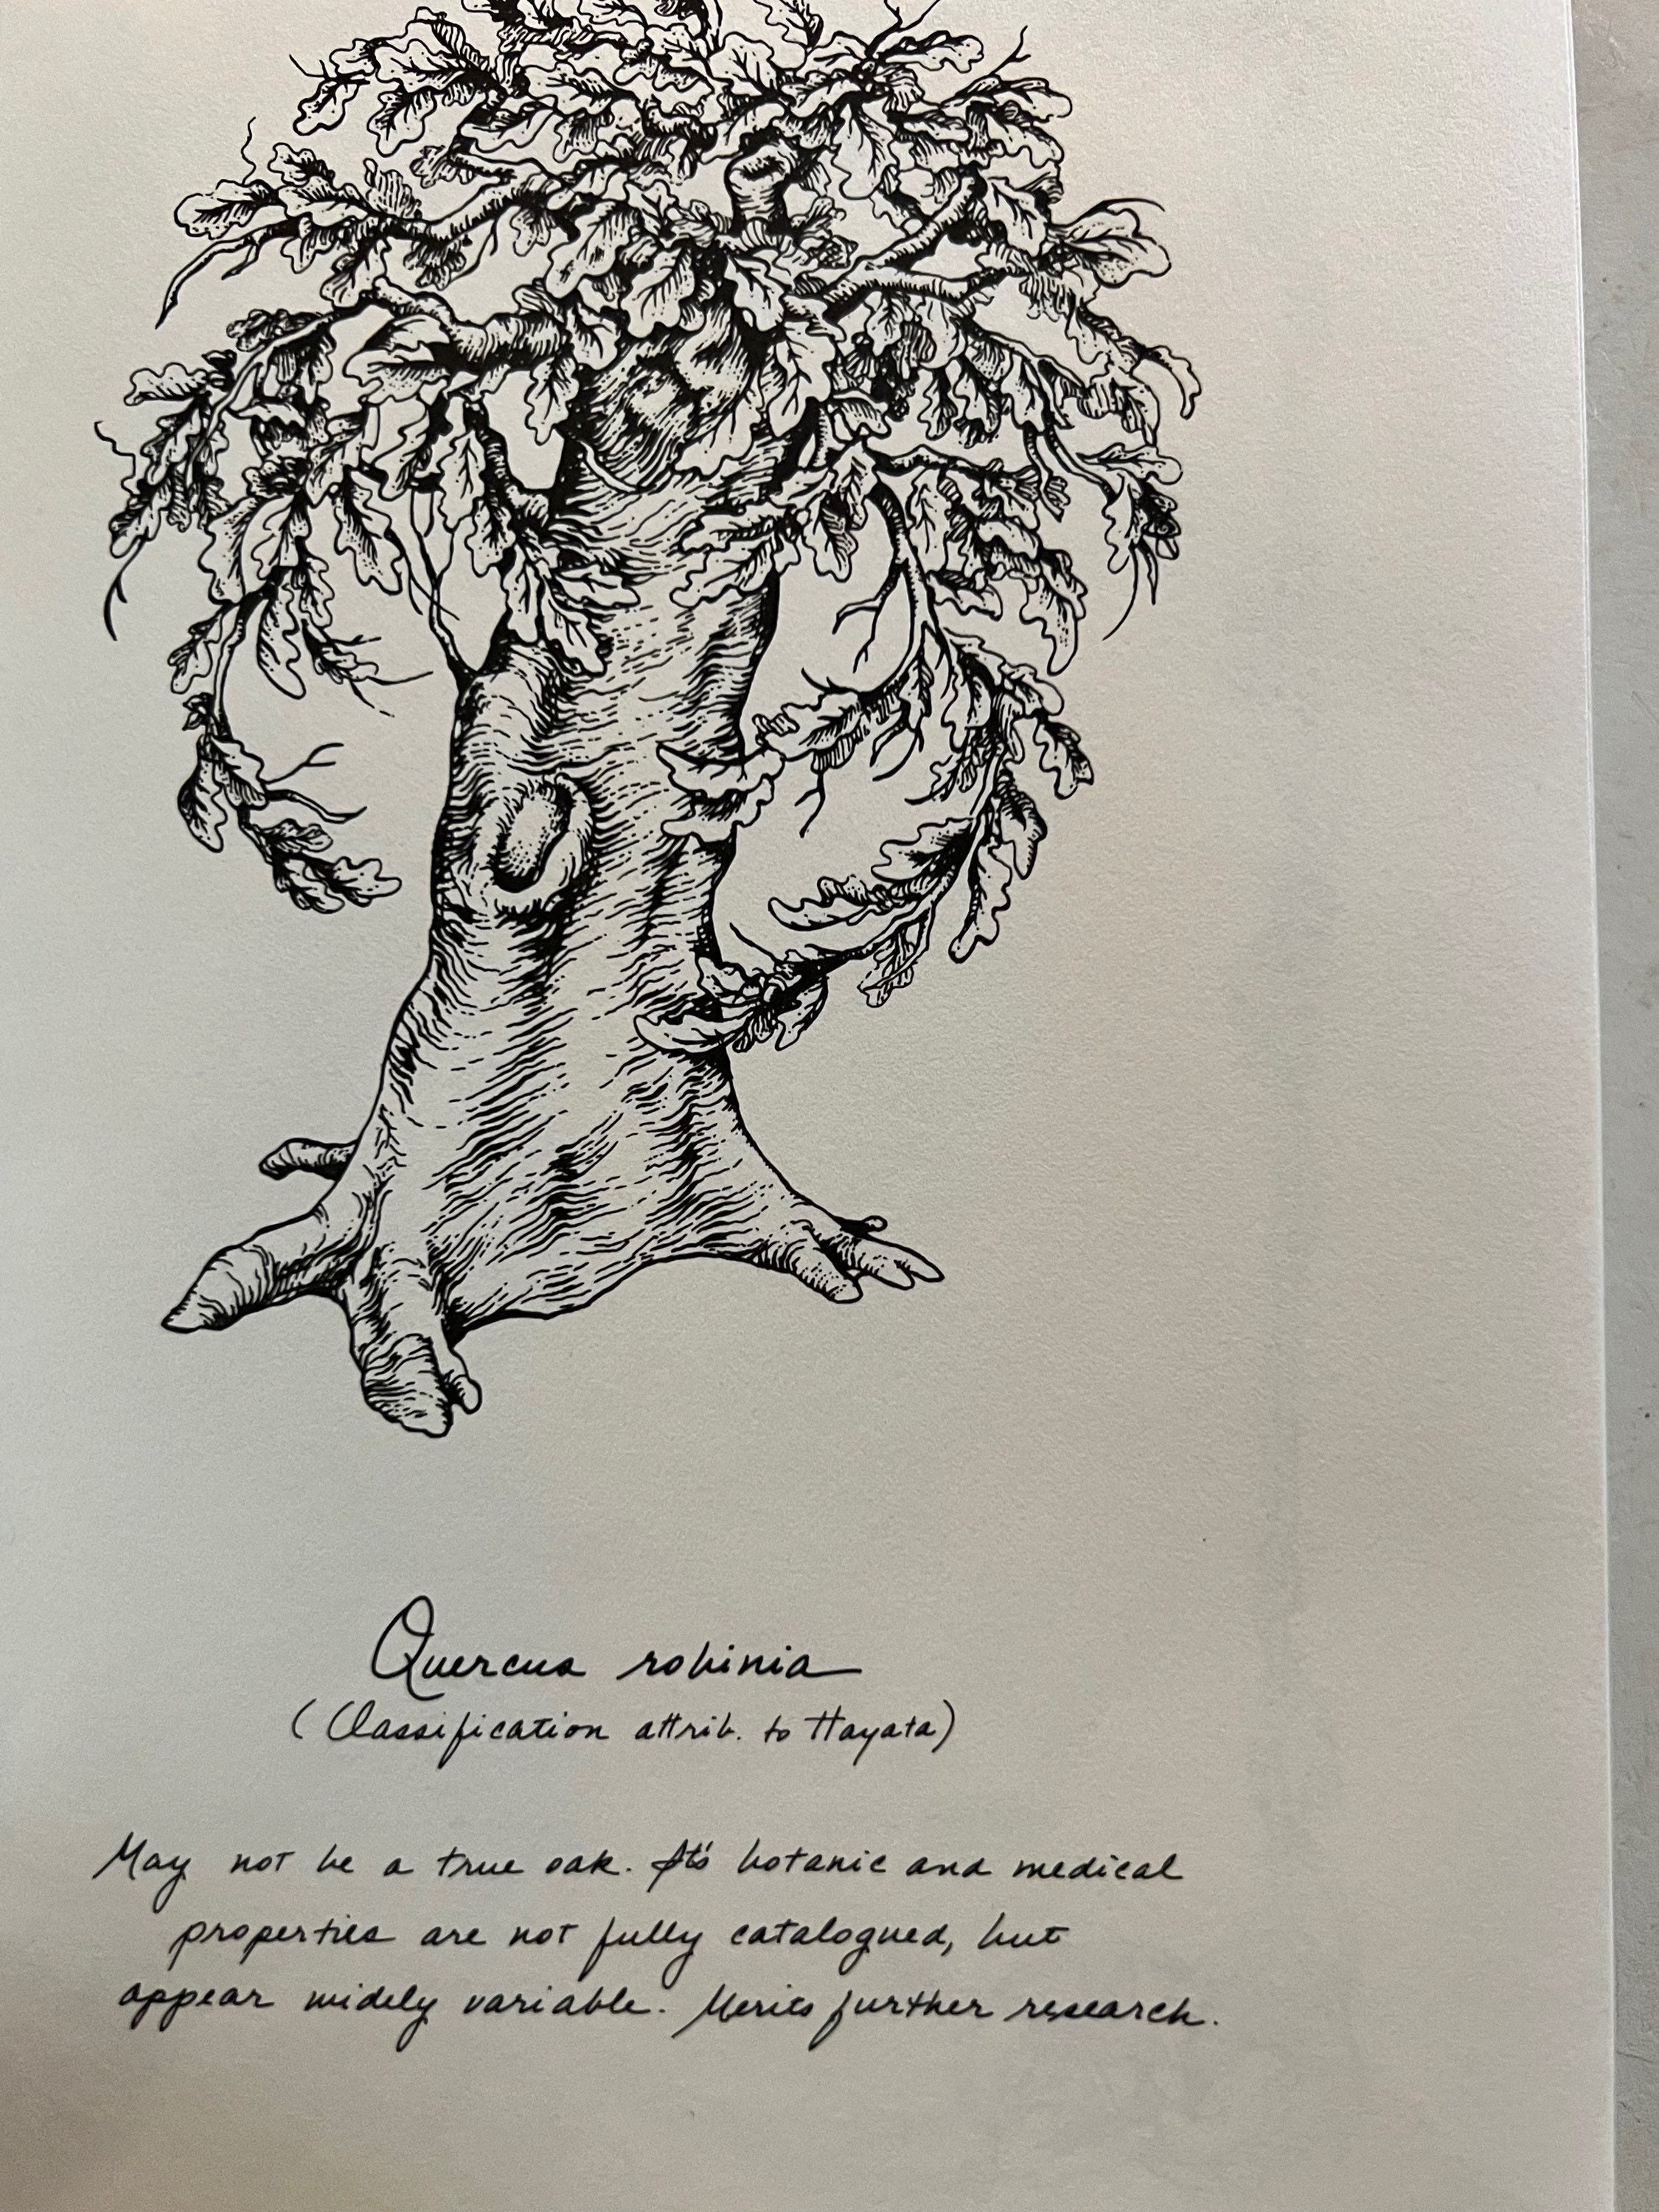 Quercus robinia
(Classification attrib. to Hayata)
May not be a true oak. It's botanic and medical
properties are not fully catalogued, but
appear widely variable. Merits further research.